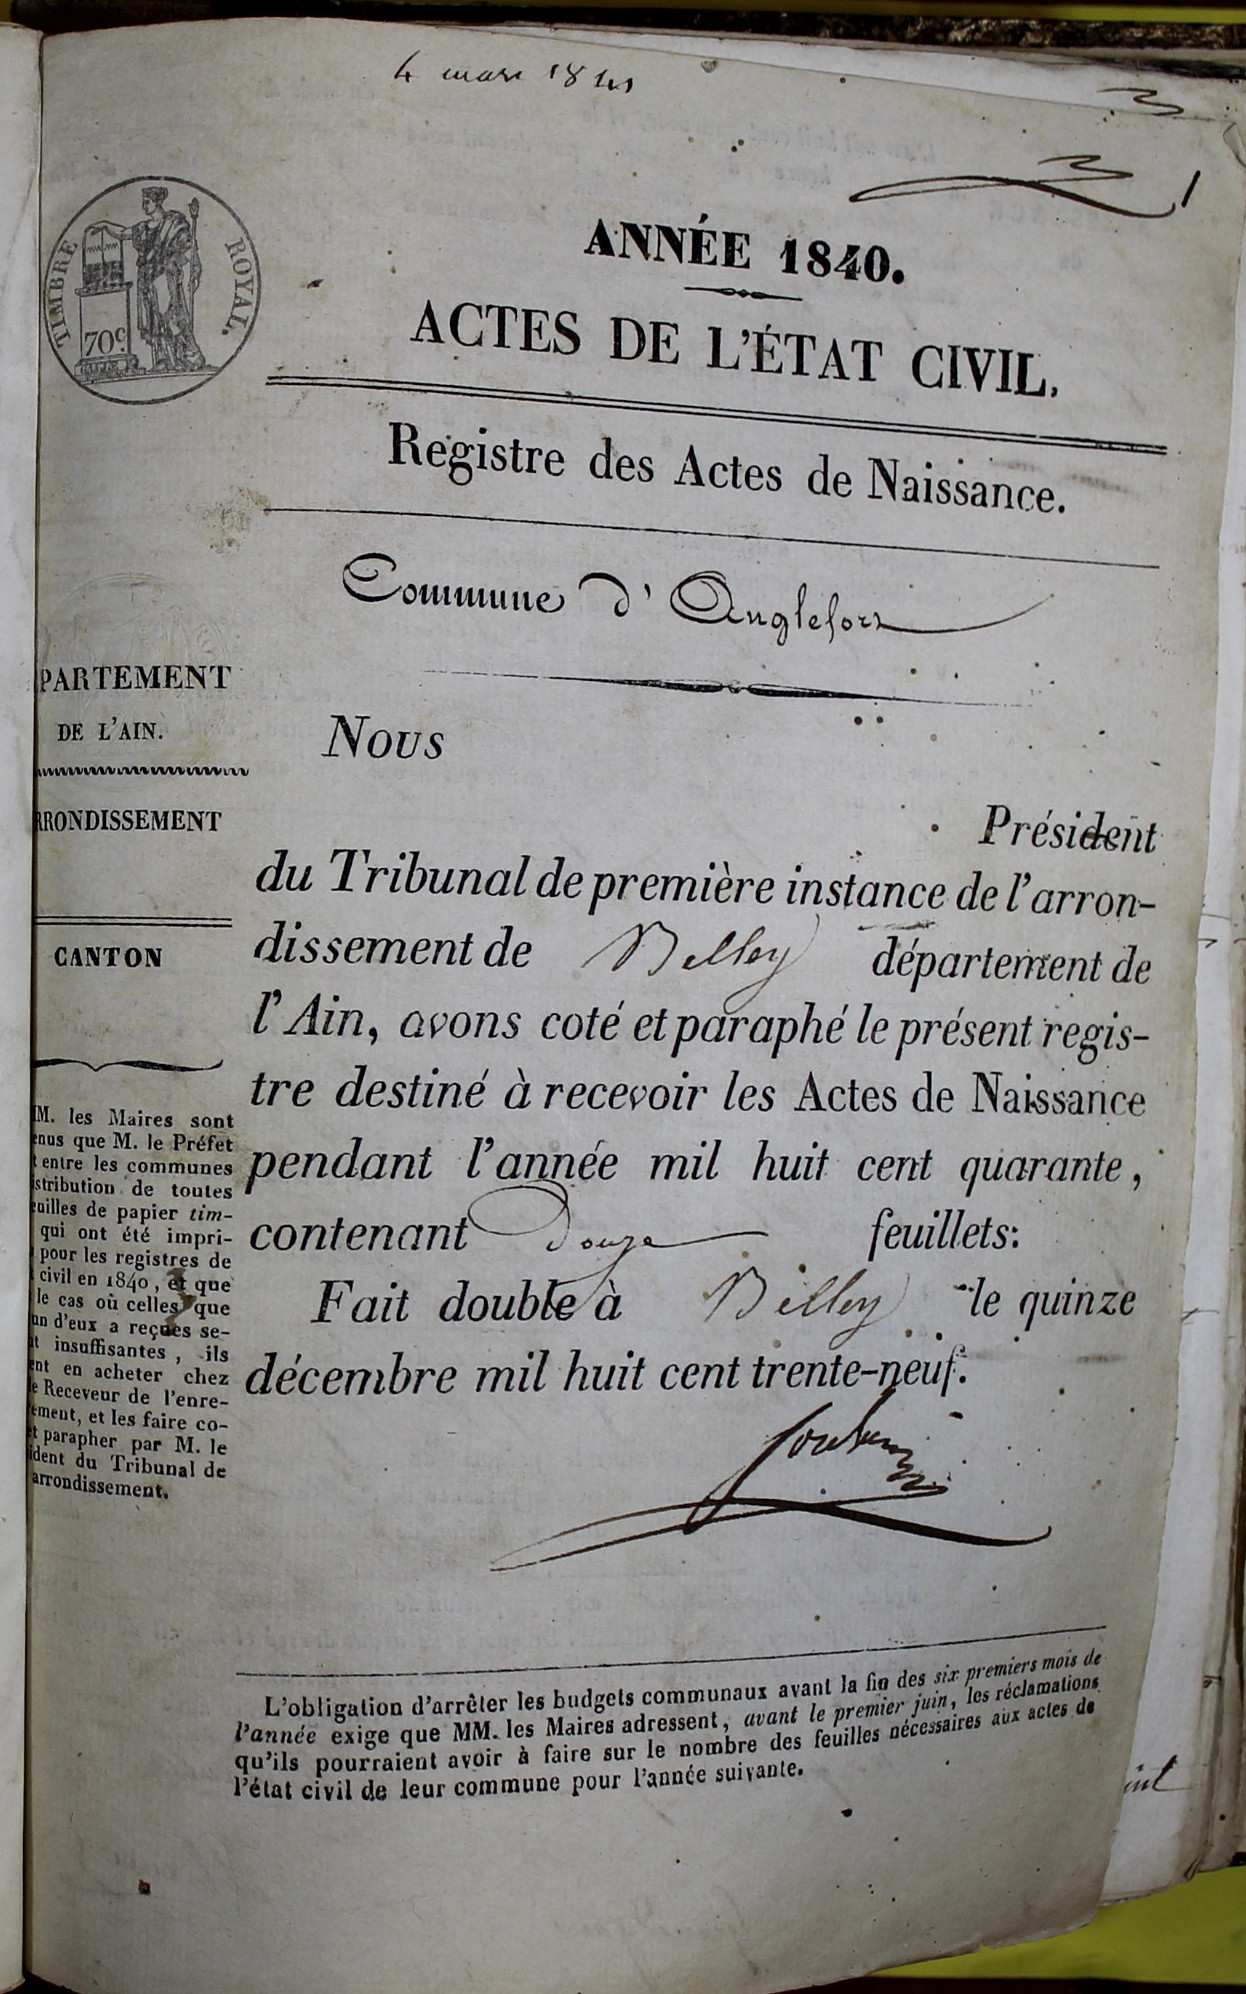 4 mars 1841
1
TIMBRE ROYAL.
70c.
ANNÉE 1840.
ACTES DE L'ÉTAT CIVIL.
Registre des Actes de Naissance.
Commune d'Anglefort
PARTEMENT
DE L'AIN.
RRONDISSEMENT
CANTON
M. les Maires sont
enus que M. le Préfet
t entre les communes
stribution de toutes
euilles de papier tim-
qui ont été impri-
pour les registres de
civil en 1840, et que
le cas où celles que
un d'eux a reçues se-
nt insuffisantes, ils
ent en acheter chez
e Receveur de l'enre-
ement, et les faire co-
et parapher par M. le
ident du Tribunal de
arrondissement.
Nous
Président
du Tribunal de première instance de l'arron-
dissement de Belley département de
l'Ain, avons coté et paraphé le présent regis-
tre destiné à recevoir les Actes de Naissance
pendant l'année mil huit cent quarante,
contenant Douze feuillets:
Fait double à Belley le quinze
décembre mil huit cent trente-neuf.
L'obligation d'arrêter les budgets communaux avant la fin des six premiers mois de
l'année exige que MM. les Maires adressent, avant le premier juin, les réclamations
qu'ils pourraient avoir à faire sur le nombre des feuilles nécessaires aux actes de
l'état civil de leur commune pour l'année suivante.